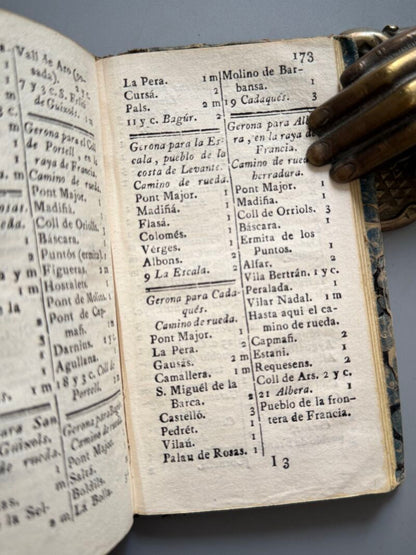 Vall de Aro (po-
sada).
7 y 3 c. S. Feliu
de Guixols.
Gerona para el Coll
de Portell, en la
raya de Francia.
Camino de rueda.
Pont Major. 1
Madiñá. 1
Coll de Orriols.
Báscara.
Puntós (ermita).
Figueras. 1 m
Hostalets.
Pont de Molins. 1
Pont de Cap-
mañ. 1
Darnius. 1
Agullana. 1
18 y 3 c. Coll de
Portell.
Camino de rueda.
Pont Major.
Salrá.
173
La Pera. 1 m
Cursá. 2
Pals. 2 m
11 y c. Bagúr. 2
Gerona para la Es-
cala, pueblo de la
costa de Levante.
Camino de rueda.
Pont Major. 1
Madiñá. 1
Flasá. 1
Colomés. 1
Verges. 1
Albons. 2
9 La Escala. 2
Gerona para Cada-
qués.
Camino de rueda.
Pont Major. 1
La Pera. 2
Gausás. 2 m
Camallera. 1 m
S. Miguél de la
Barca. 2
Castelló. 3
Pedrét. 1
Vilaú. 1
Palau de Rosas. 1
Molino de Bar-
bansa. 1
19 Cadaqués. 3
Gerona para Albe-
ra, en la raya de
Francia.
Camino de rueda y
herradura.
Pont Major. 1
Madiñá. 1
Coll de Orriols. 3
Báscara. 1
Ermita de los
Puntos. 1
Alfar. 2
Vila Bertrán. 1 y c.
Peralada. 1
Vilar Nadal. 1 m
Hasta aquí el ca-
mino de rueda.
Capmañ. 2
Estani. 1
Requesens. 2
Coll de Ars. 2 y c.
21 Albera. 1
Pueblo de la fron-
tera de Francia.
I 3